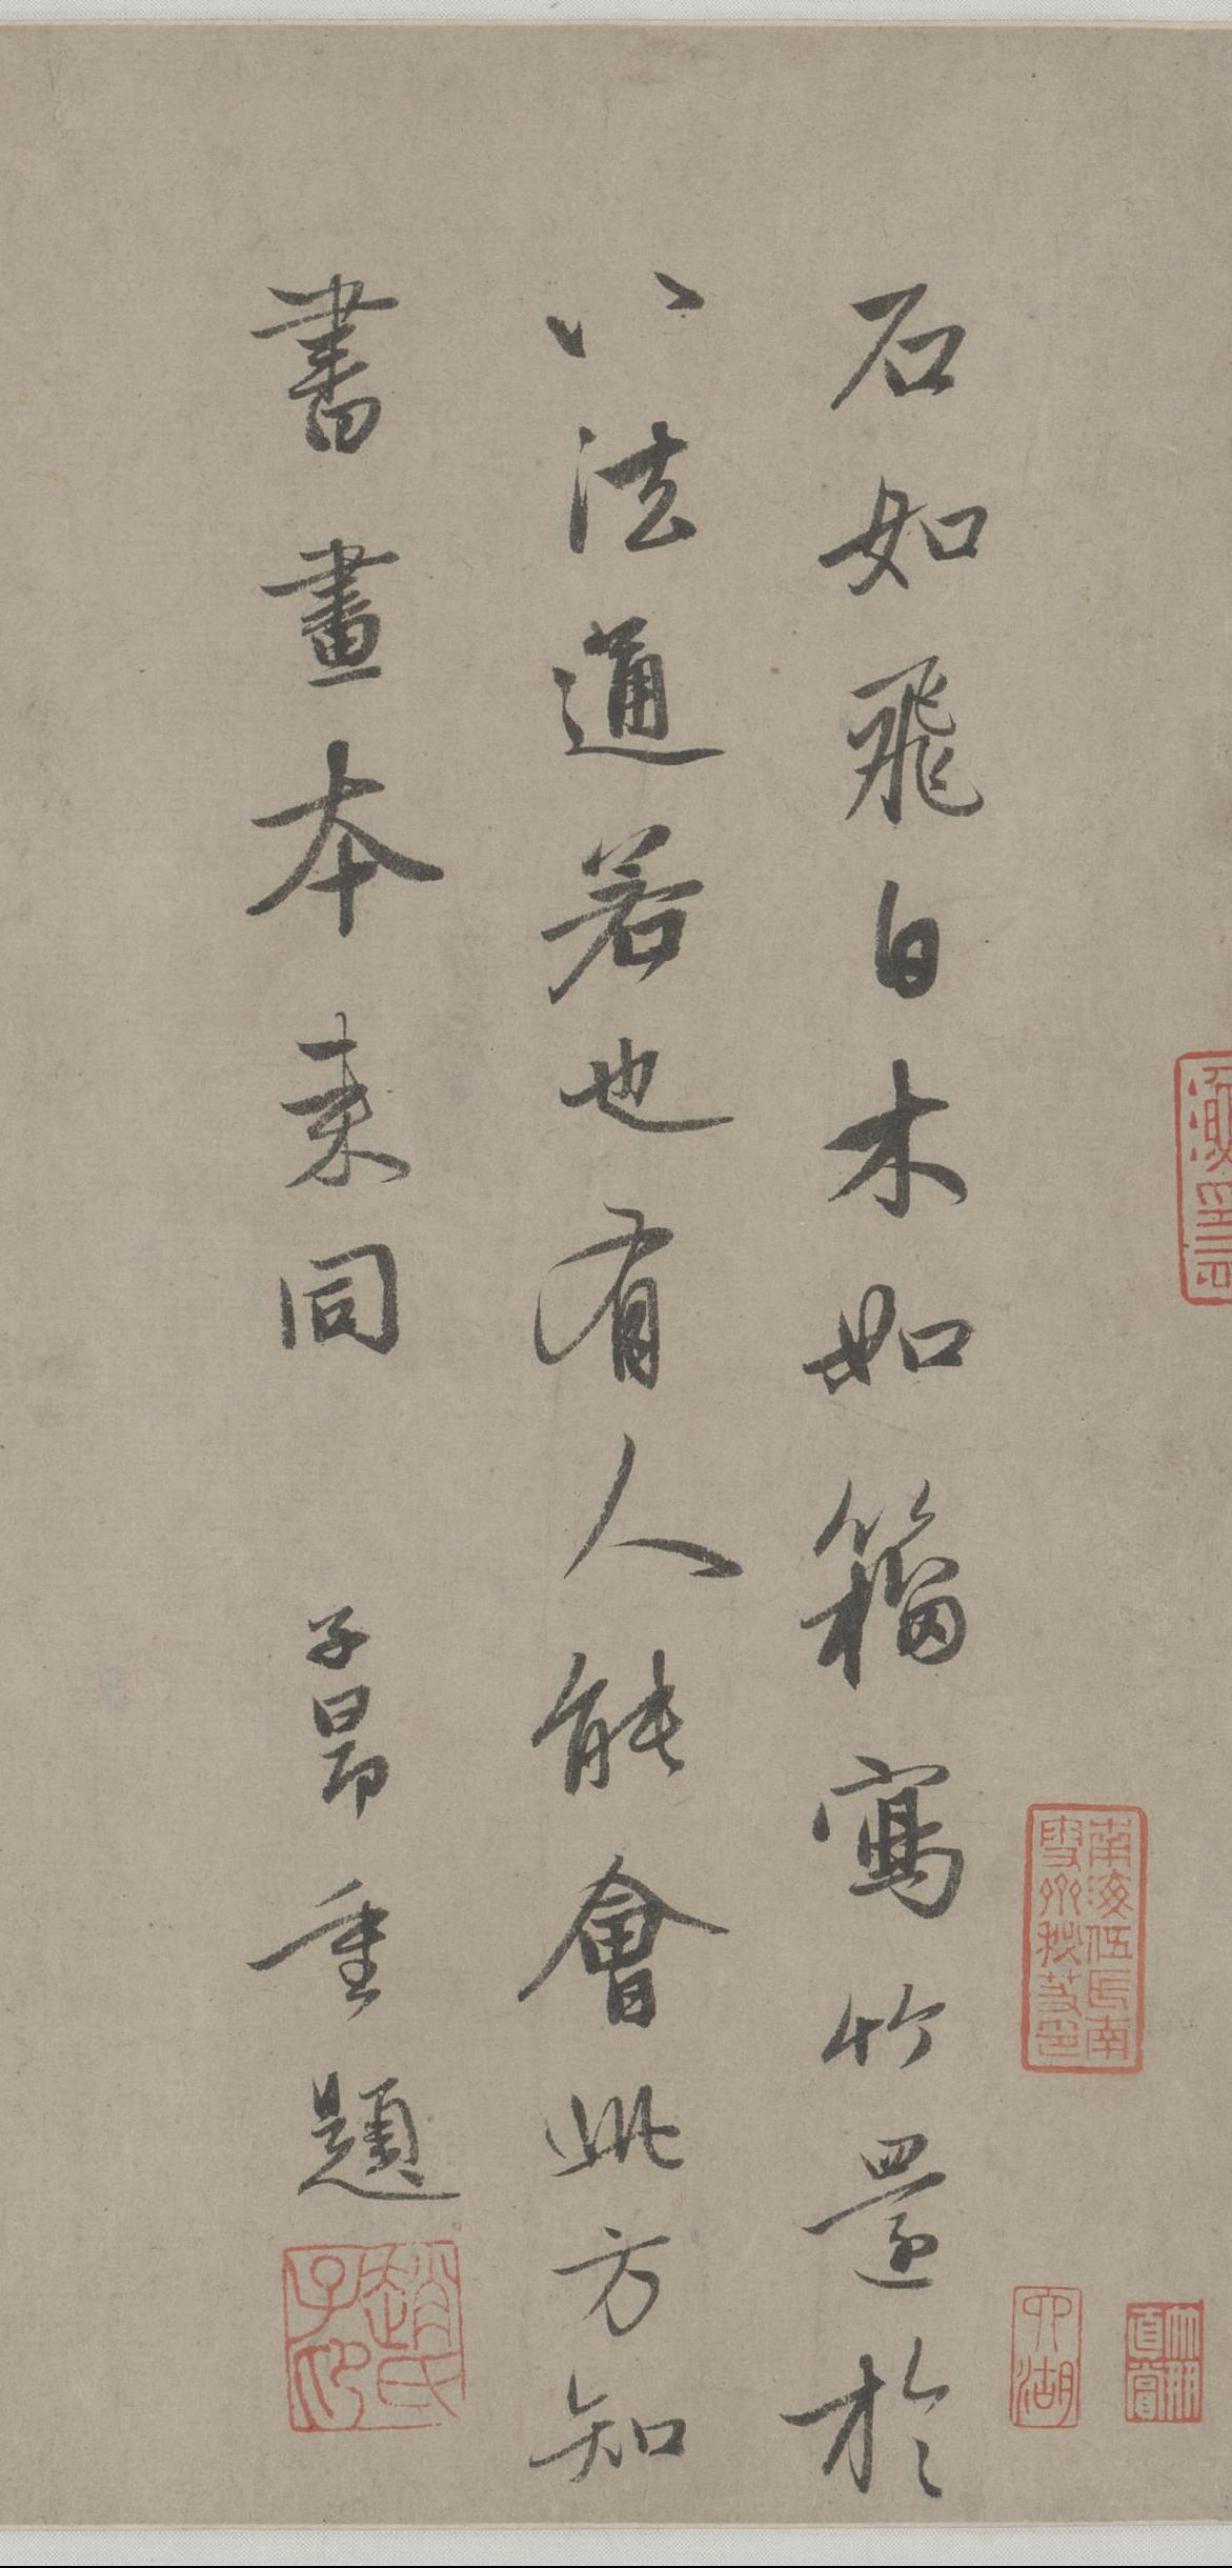 南海伍氏南
雪齋秘笈印
石如飛白木如籀寫竹還於
八法通若也有人能會此方知
書畫本來同 子昂重題
趙氏
子昂